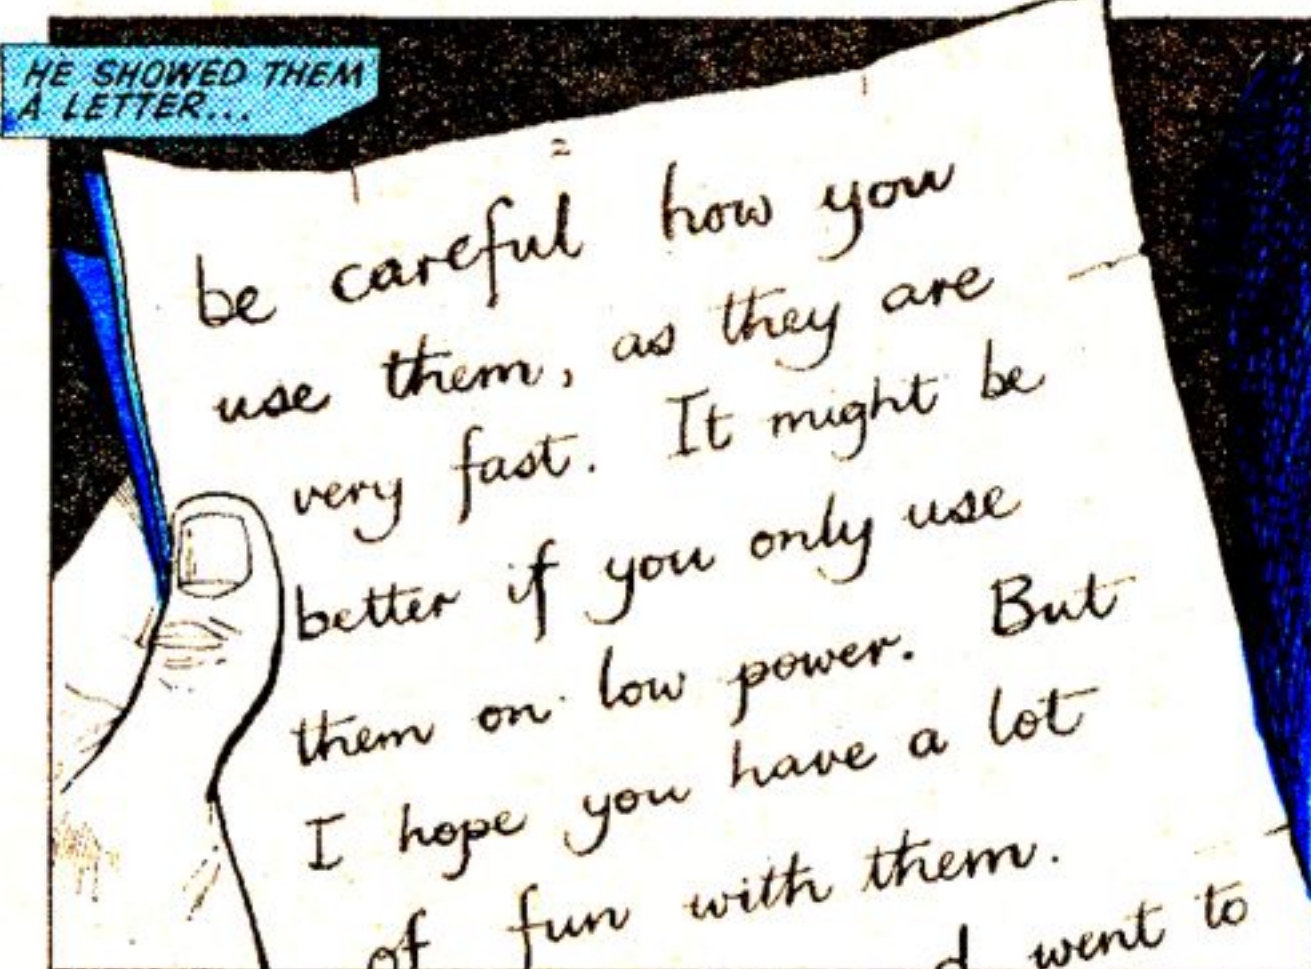 HE SHOWED THEM
A LETTER...
2
be careful how you
use them, as they are
very fast. It might be
better if you only use
them on low power. But
I hope you have a lot
of fun with them.
went to